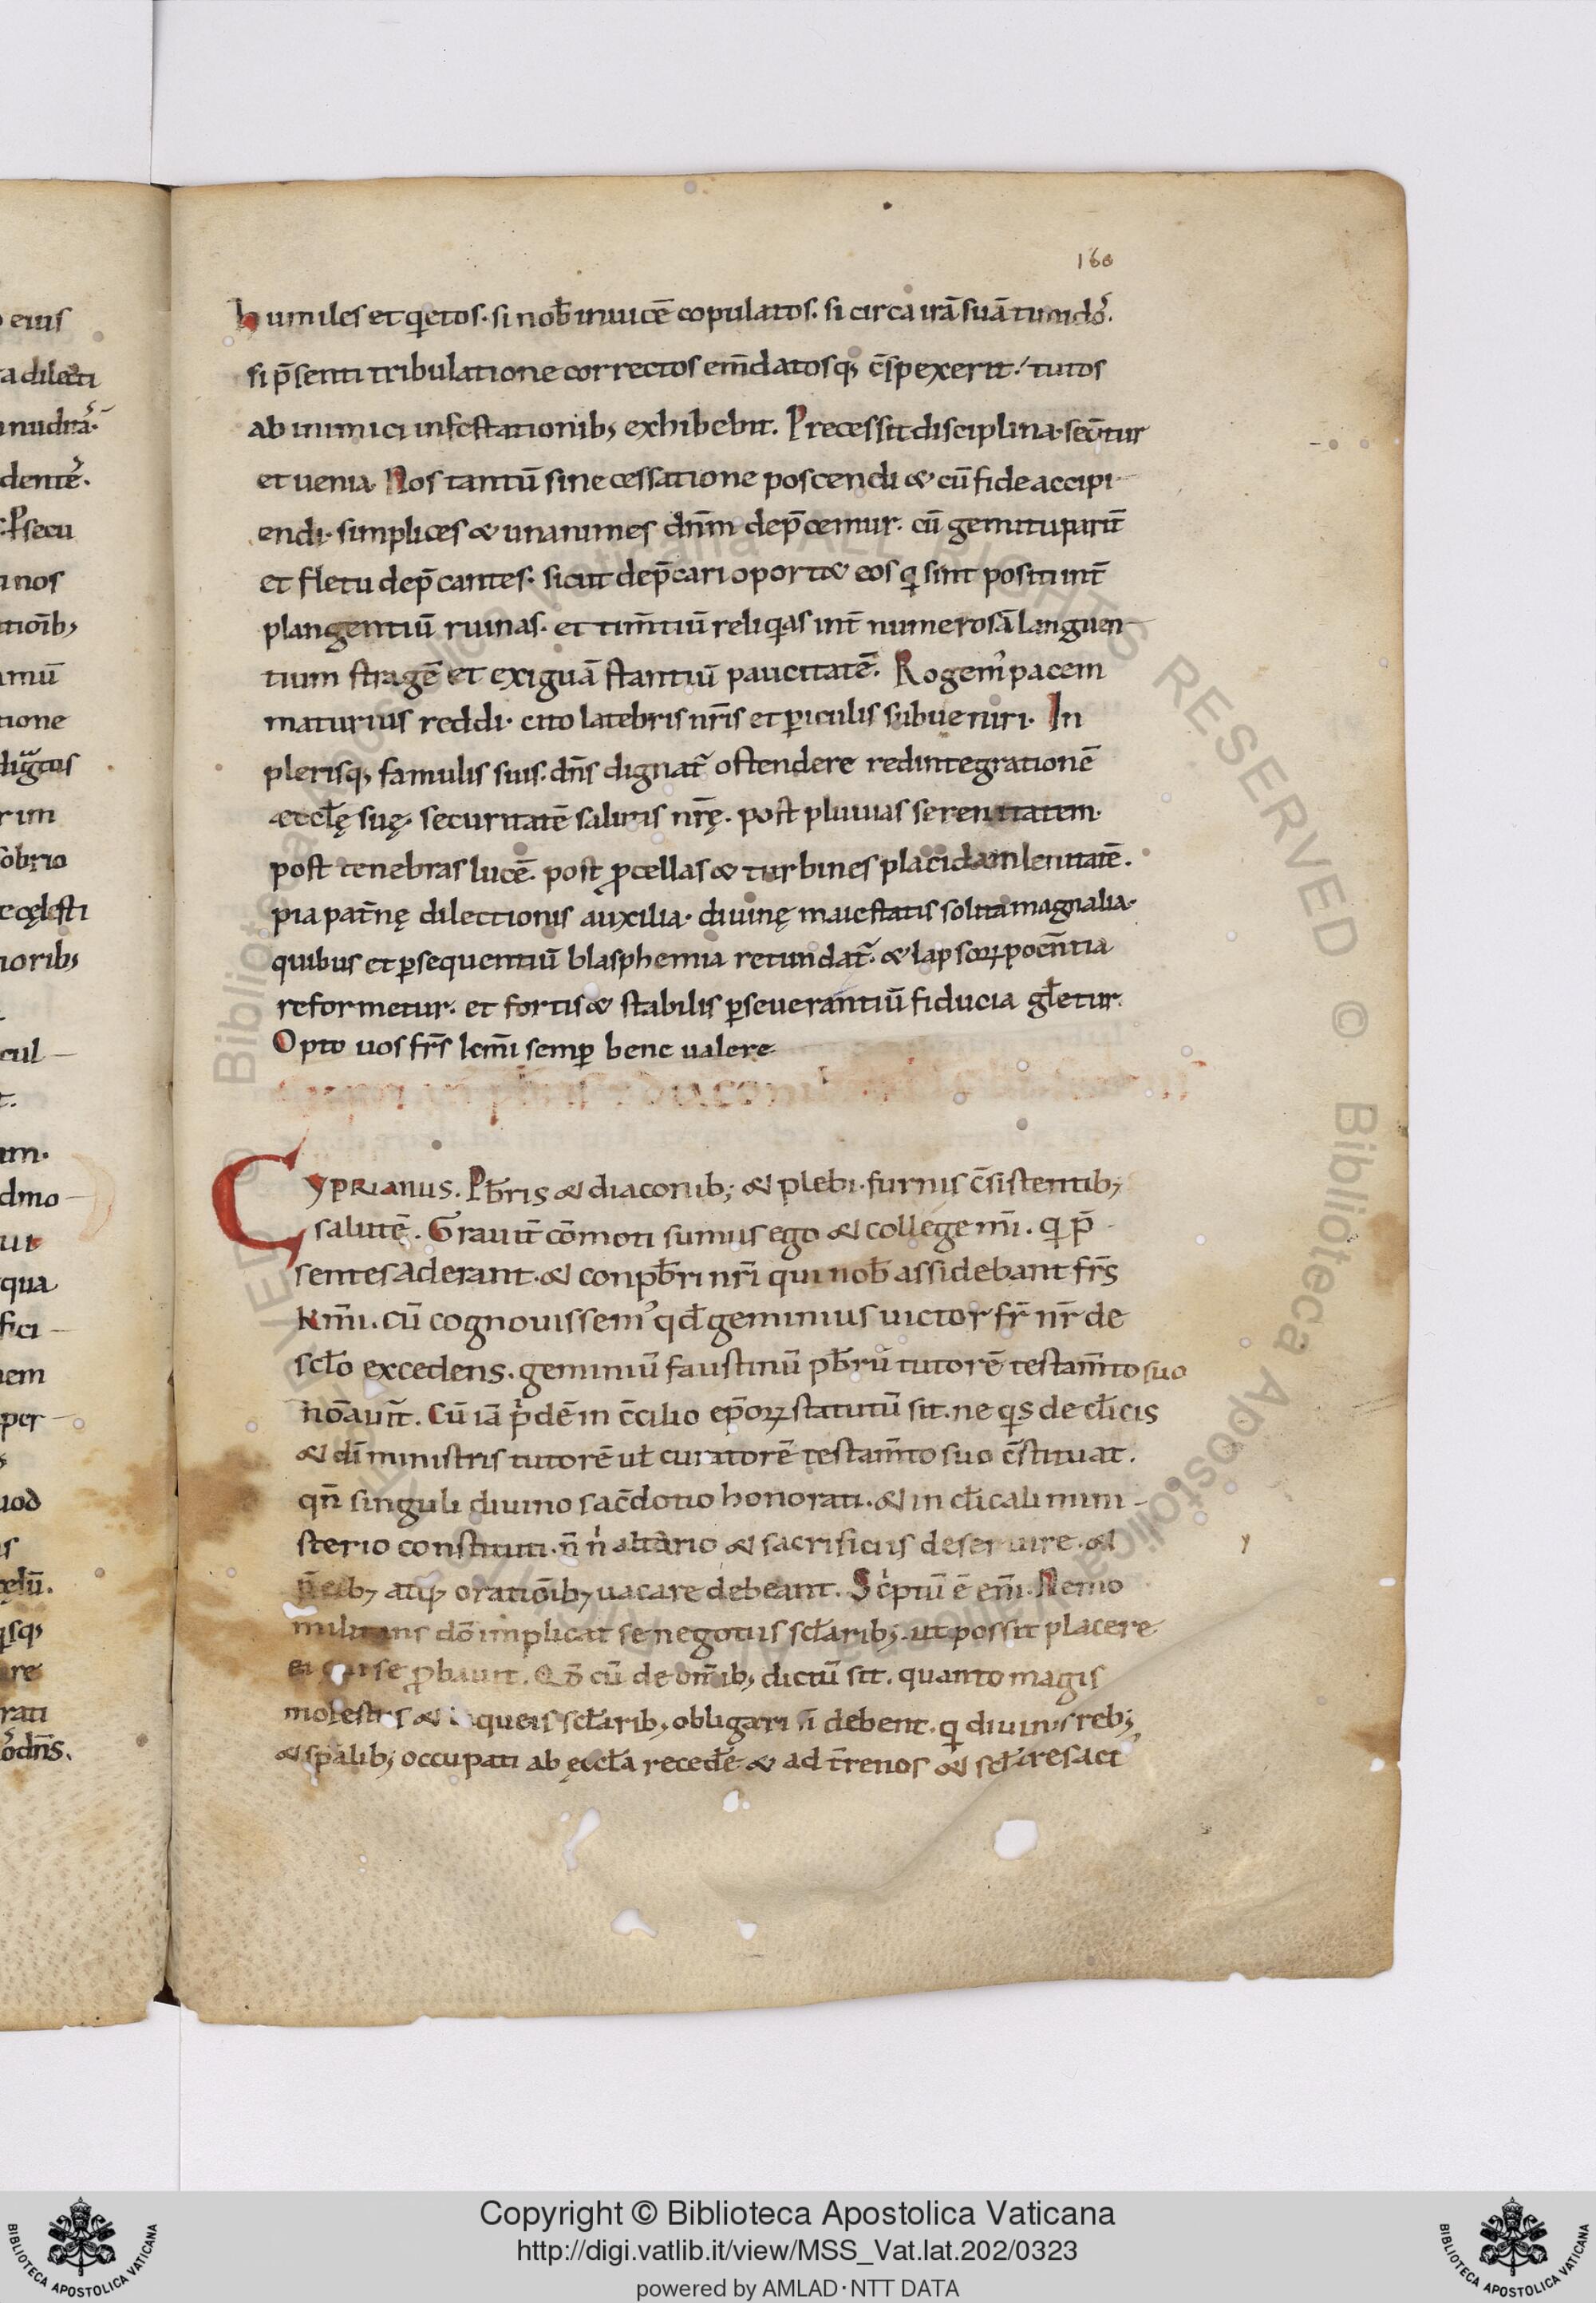 160
humiles et q̇etos· si nob̄ inuicē copulatos. si circa irā suā timidoˢ.
si p̄senti tribulatione correctos em̄datosq; c̄spexerit. tutos
ab inimici infestationib; exhibebit. Precessit disciplina· seq̄tur
et uenia. Nos tantū sine cessatione poscendi & cū fide accipi
endi· simplices & unanimes dn̄m dep̄cemur. cū gemitu parit̄
et fletu dep̄cantes· sicut dep̄cari oport& eos q̇ sint positi int̄
plangentiū ruinas. et tim̄tiū reliq̇as int̄ numerosā languen
tium stragē et exiguā stantiū paucitatē. Rogem' pacem
maturius reddi· cito latebris nr̄is et ꝑiculis subueniri· In
plerisq; famulis suis. dn̄s dignat̄ ostendere redintegrationē
ęccl̄ę suę. securitatē salutis nr̄ę. post pluuias serenitatem·
post tenebras lucē. post ꝓcellas & turbines placidam lenitatē.
pia pat̄nę dilectionis auxilia· diuinę maiestatis solita magnalia·
quibus et ꝑsequentiū blasphemia retundat̄. & lapsoꝝ poen̄tia
reformetur. et fortis & stabilis ꝑseuerantiū fiducia gl̄etur.
Opto uos fr̄s k̄mi semꝑ bene ualere
Cyprianus. Pb̄ris & diaconib; & plebi· furnis c̄sistentib;
salutē. Grauit̄ cōmoti sumus ego & collegę m̄i. q̇ p̄
sentes aderant. & conpb̄ri nr̄i qui nob̄ assidebant fr̄s
km̄i. cū cognouissem' qd̄ geminius uictor fr̄ nr̄ de
scl̄o excedens. geminiū faustinū pb̄rū tutorē testam̄to suo
nōauit̄. Cū iā p̓dē in c̄cilio ep̄oꝝ statutū sit. ne q̇s de cl̄icis
& dī ministris tutorē ul̄ curatorē testam̄to suo c̄stituat.
qn̄ singuli diuino sac̄dotio honorati. & in cl̄icali mini-
sterio constituti. n̄ n̓ altario & sacrificiis deseruire. &
p̄cib; atq; orationib; uacare debeant. Sc̓ptū ē em̄. Nemo
militans dō implicat se negotiis scl̄arib;. ut possit placere
ei cui se ꝓbauit. Qđ cū de om̄ib; dictū sit. quanto magis
molestiis & laqueis scl̄arib; obligari n̄ debent. q̇ diuinis reb;
& sp̄alib; occupati ab ęccl̄a recedē & ad t̄renos & scl̄ares act'
Copyright © Biblioteca Apostolica Vaticana
http://digi.vatlib.it/view/MSS_Vat.lat.202/0323
powered by AMLAD·NTT DATA